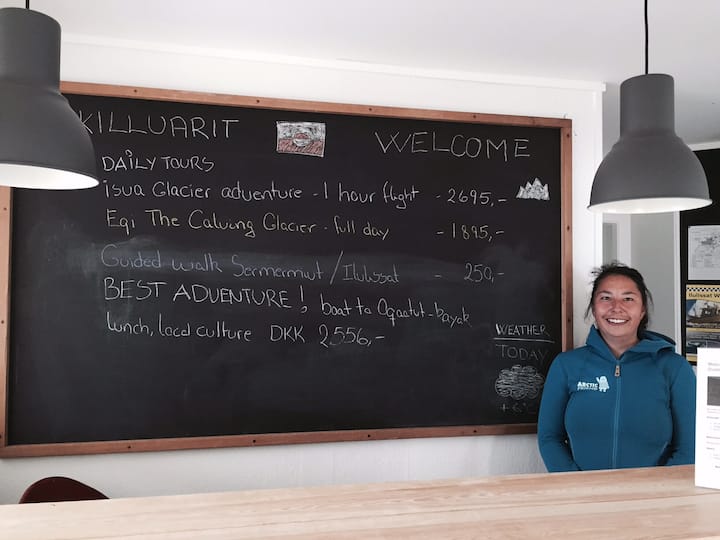 KILLUARIT
WELCOME
DAILY TOURS
isua Glacier adventure - 1 hour flight - 2695,-
Eqi The Calving Glacier - full day - 1895,-
Guided walk Sermermiut / Ilulissat - 250,-
BEST ADVENTURE! boat to Oqaatut - kayak
lunch, local culture DKK 2556,-
WEATHER
TODAY
ARCTIC
Ilulissat Wa